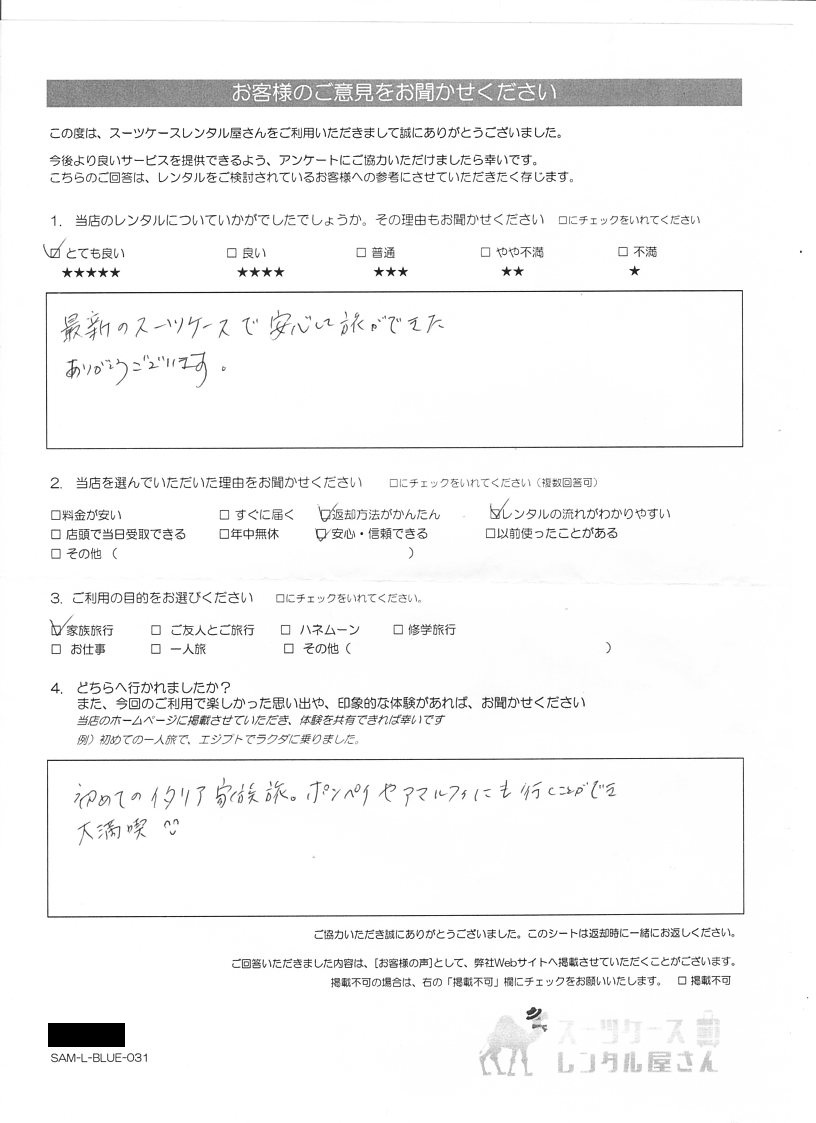 お客様のご意見をお聞かせください
この度は、スーツケースレンタル屋さんをご利用いただきまして誠にありがとうございました。
今後より良いサービスを提供できるよう、アンケートにご協力いただけましたら幸いです。
こちらのご回答は、レンタルをご検討されているお客様への参考にさせていただきたく存じます。
1. 当店のレンタルについていかがでしたでしょうか。その理由もお聞かせください □にチェックをいれてください
☑ とても良い □ 良い □ 普通 □ やや不満 □ 不満
★★★★★ ★★★★ ★★★ ★★ ★
最新のスーツケースで安心して旅ができた
ありがとうございます。
2. 当店を選んでいただいた理由をお聞かせください □にチェックをいれてください（複数回答可）
□料金が安い □ すぐに届く ☑返却方法がかんたん ☑レンタルの流れがわかりやすい
□ 店頭で当日受取できる □年中無休 ☑安心・信頼できる □以前使ったことがある
□ その他（ ）
3. ご利用の目的をお選びください □にチェックをいれてください。
☑家族旅行 □ ご友人とご旅行 □ ハネムーン □ 修学旅行
□ お仕事 □ 一人旅 □ その他（ ）
4. どちらへ行かれましたか？
また、今回のご利用で楽しかった思い出や、印象的な体験があれば、お聞かせください
当店のホームページに掲載させていただき、体験を共有できれば幸いです
例）初めての一人旅で、エジプトでラクダに乗りました。
初めてのイタリア家族旅。ポンペイやアマルフィにも行くことができ
大満喫 ^^
ご協力いただき誠にありがとうございました。このシートは返却時に一緒にお返しください。
ご回答いただきました内容は、[お客様の声]として、弊社Webサイトへ掲載させていただくことがございます。
掲載不可の場合は、右の「掲載不可」欄にチェックをお願いいたします。 □ 掲載不可
SAM-L-BLUE-031
スーツケース
レンタル屋さん